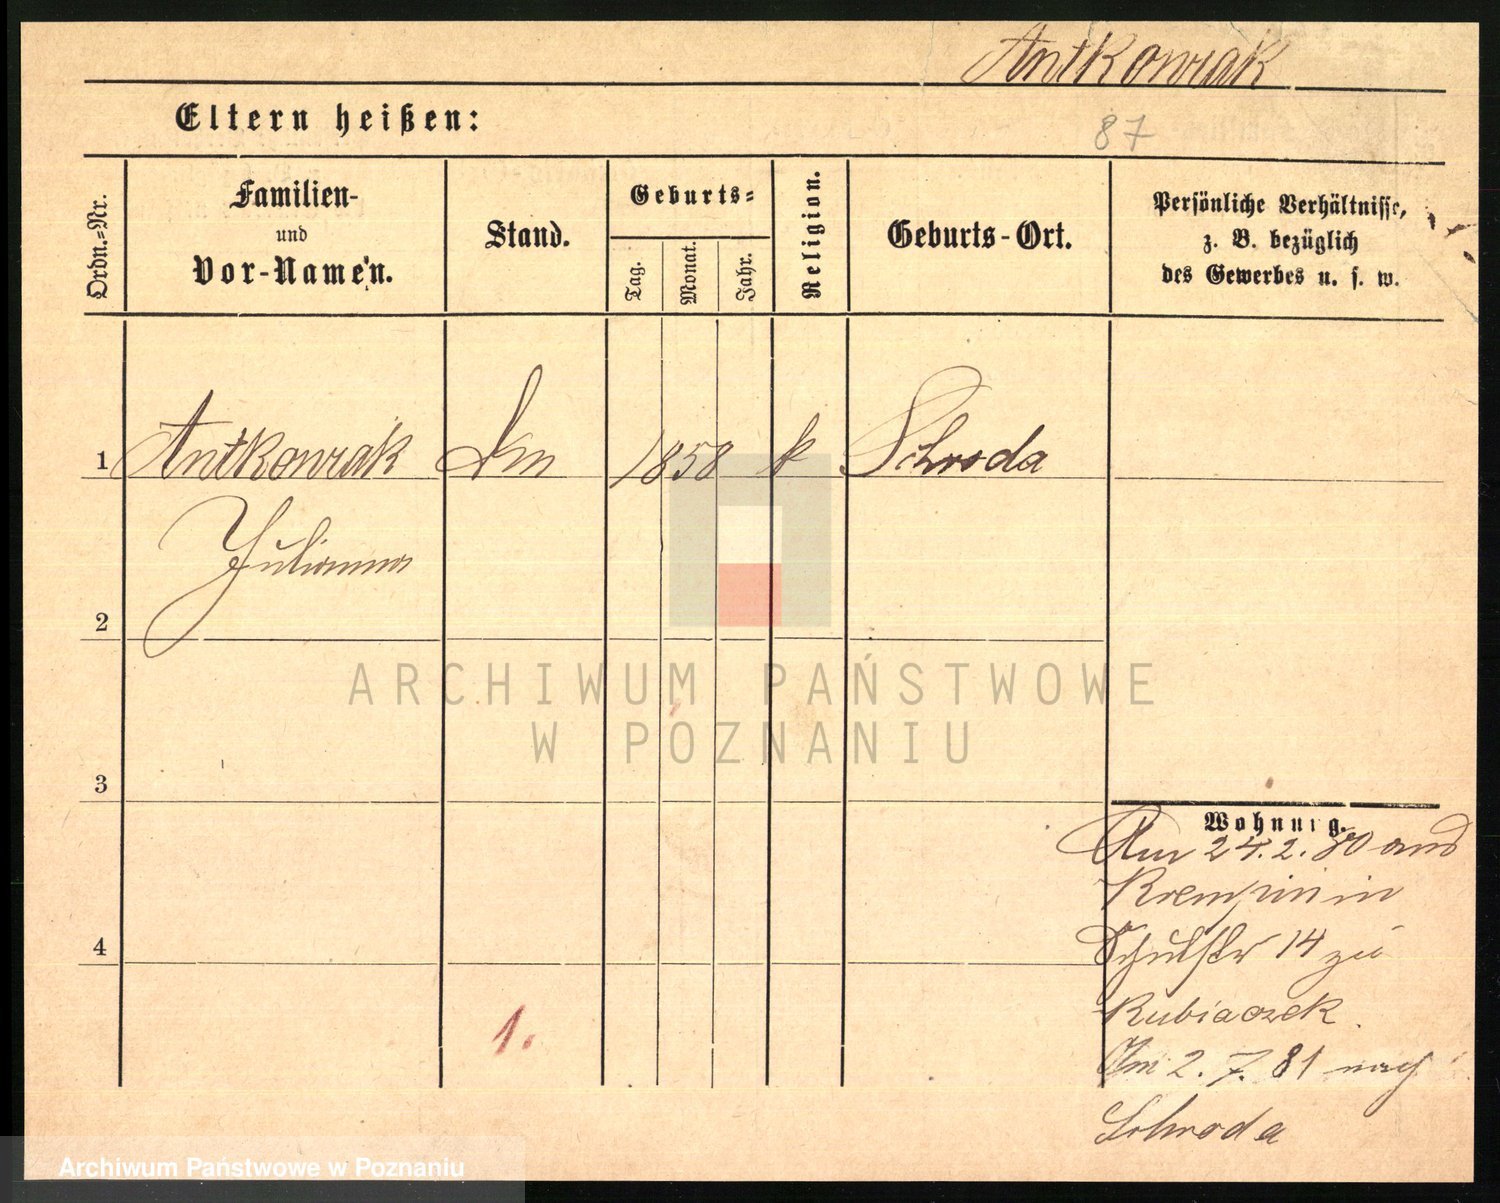 Antkowiak
Eltern heißen:
87
Ordn.=Nr.
Familien-
und
Vor-Namen.
Stand.
Geburts=
Tag.
Monat.
Jahr.
Religion.
Geburts-Ort.
Persönliche Verhältnisse,
z. B. bezüglich
des Gewerbes u. s. w.
1 Antkowiak 1858 k Schroda
Julianna
2
3
4
Wohnung.
Am 24.2.80 aus
Krempin in
Schulstr 14 zu
Kubiaczek
Am 2.7.81 nach
Schroda
1.
ARCHIWUM PAŃSTWOWE
W POZNANIU
Archiwum Państwowe w Poznaniu